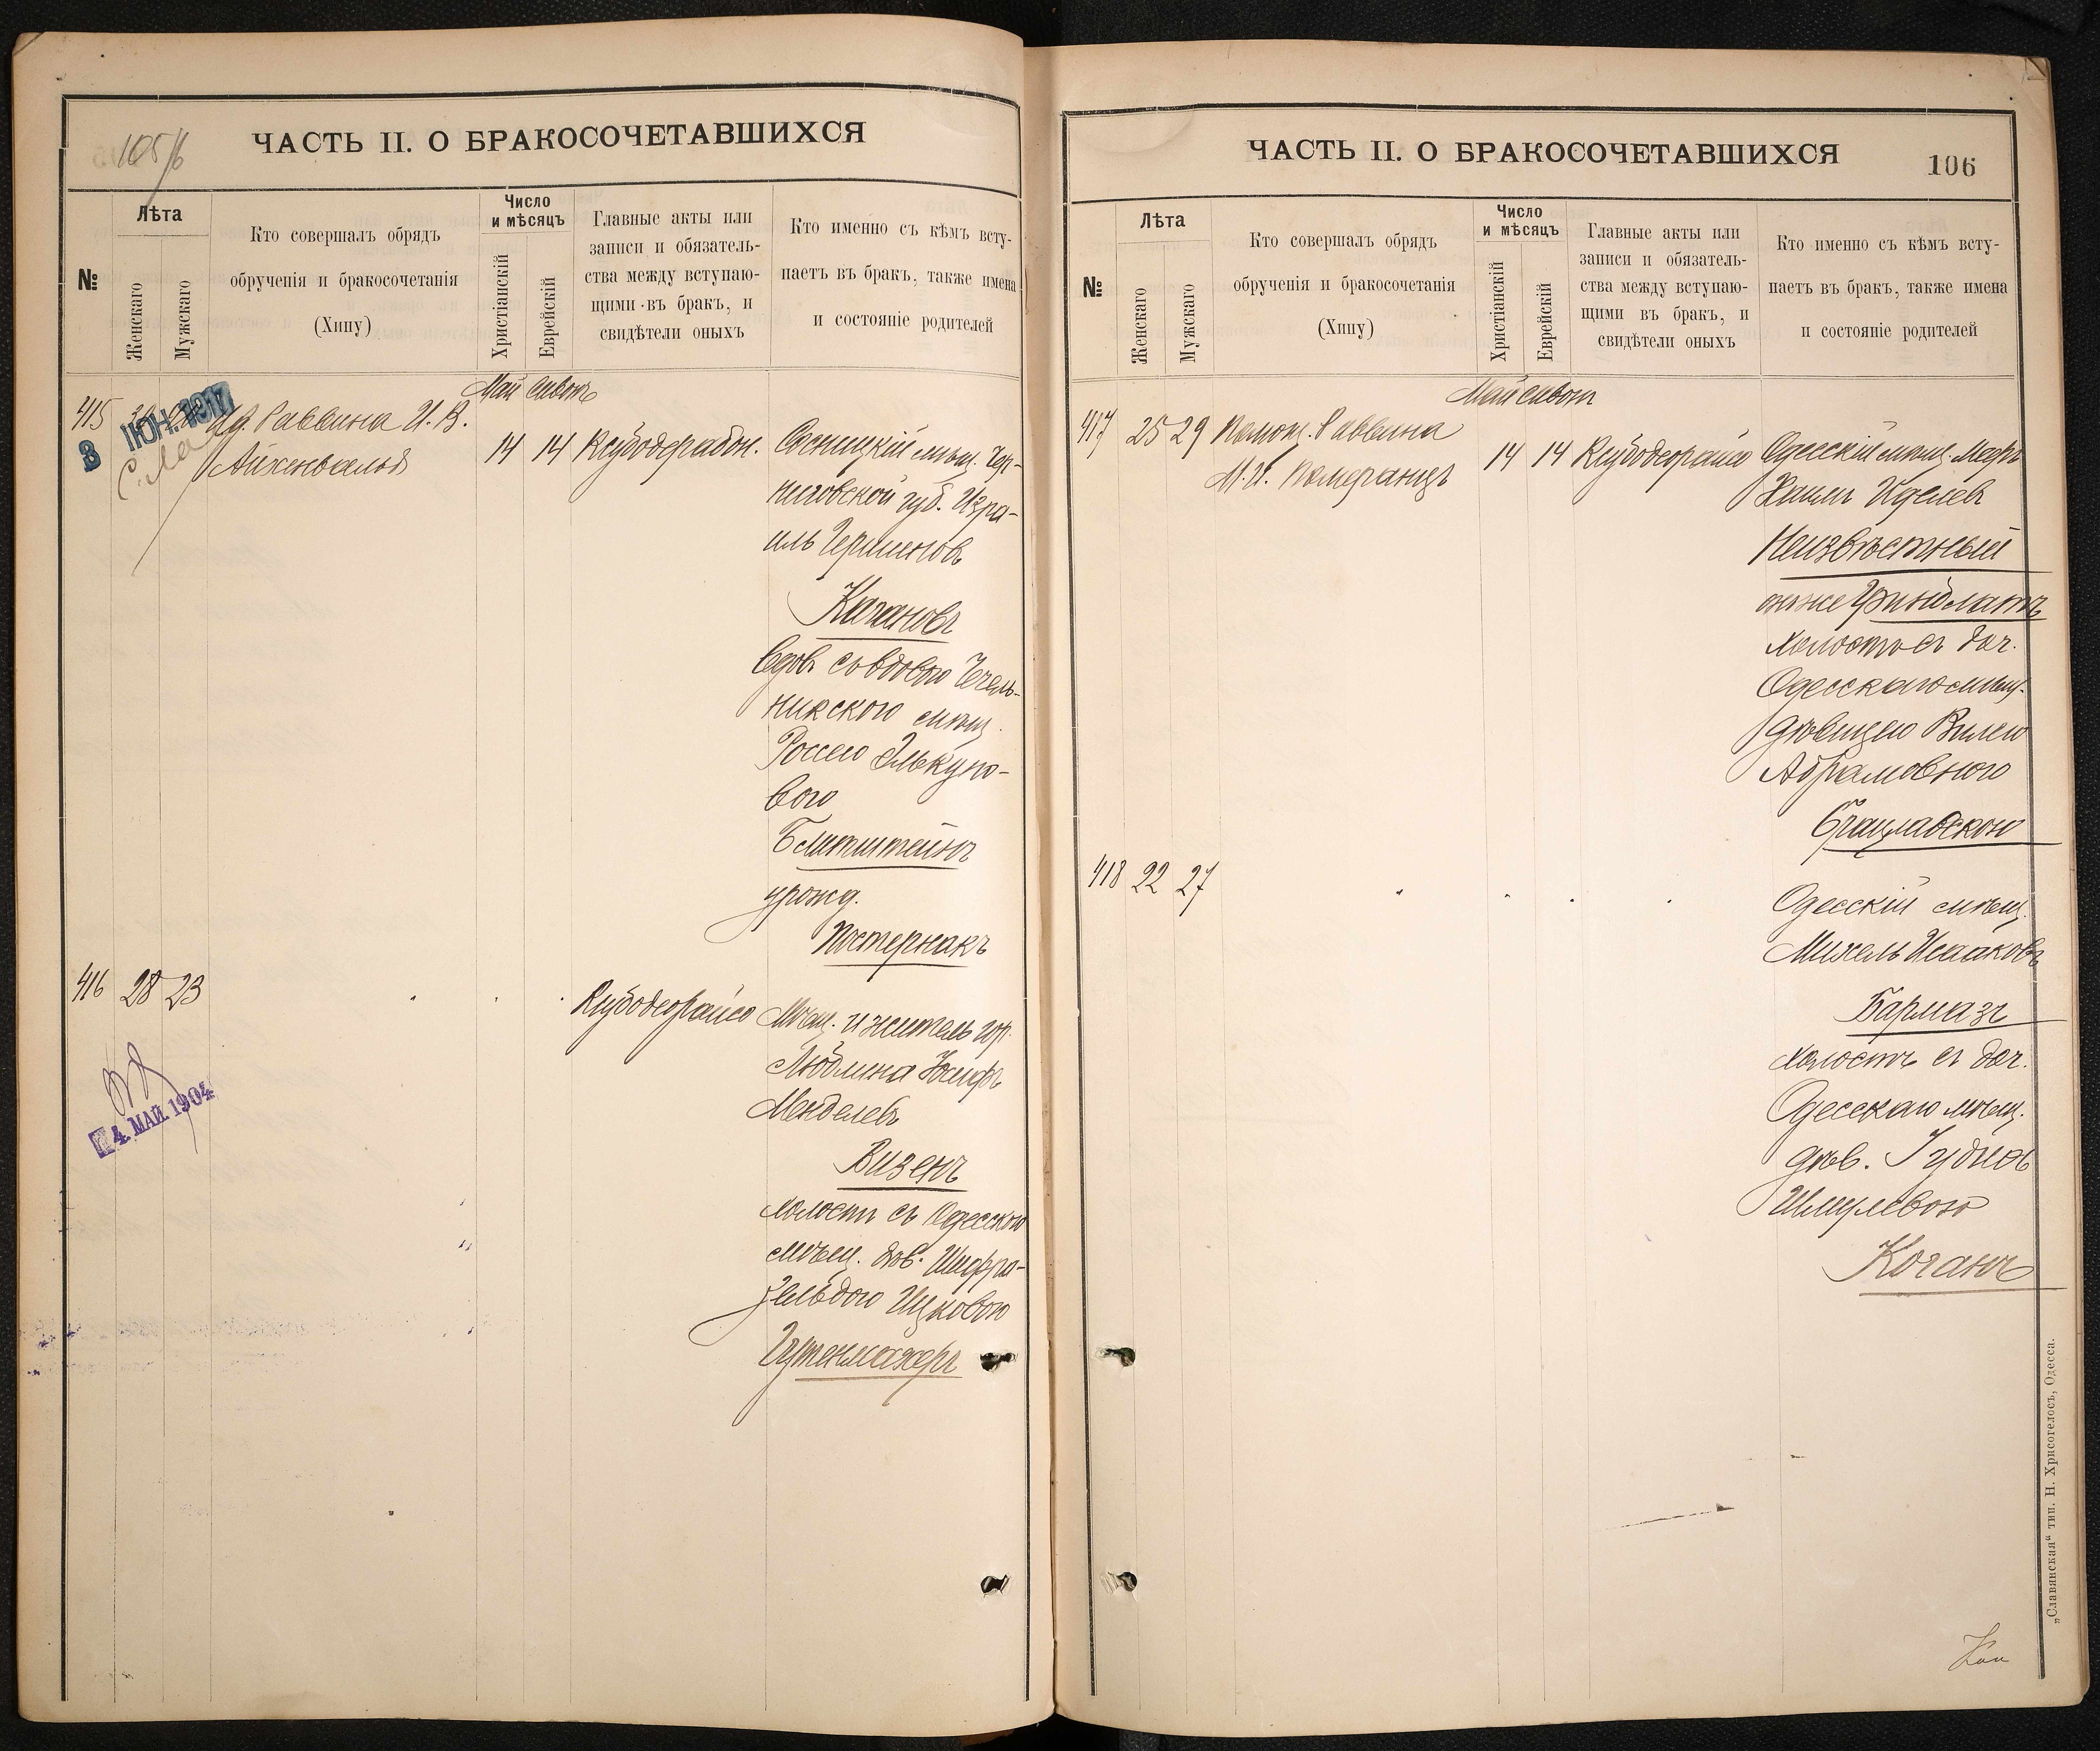 105/6
ЧАСТЬ II. О БРАКОСОЧЕТАВШИХСЯ
№
Лѣта
Женскаго
Мужскаго
Кто совершалъ обрядъ
обрученія и бракосочетанія
(Хипу)
Число
и мѣсяцъ
Христіанскій
Еврейскій
Главные акты или
записи и обязатель-
ства между вступаю-
щими въ бракъ, и
свидѣтели оныхъ
Кто именно съ кѣмъ всту-
паетъ въ бракъ, также имена
и состояніе родителей
Май Сивонъ
415
3 ІЮН. 1917
Ид. Раввина И. В.
Айхенвальд
14 14
Сосницкій мѣщ. Чер-
ниговской губ. Изра-
иль Гершеновъ
Кагановъ
вдов. съ вдовою Чечель-
никскою мѣщ.
Россею Элькуно-
вою
Блитштейнъ
урожд.
Постернакъ
416 28 23
4. МАЙ. 1904
Мѣщ. и житель гор.
Люблина Іосифъ
Менделевъ
Визенъ
холостъ съ Одесскою
мѣщ. дѣв. Шифра-
Зельдою Ицковою
Гутенмахеръ
ЧАСТЬ II. О БРАКОСОЧЕТАВШИХСЯ
106
№
Лѣта
Женскаго
Мужскаго
Кто совершалъ обрядъ
обрученія и бракосочетанія
(Хипу)
Число
и мѣсяцъ
Христіанскій
Еврейскій
Главные акты или
записи и обязатель-
ства между вступаю-
щими въ бракъ, и
свидѣтели оныхъ
Кто именно съ кѣмъ всту-
паетъ въ бракъ, также имена
и состояніе родителей
Май Сивонъ
417 25 29
Помощ. Раввина
М. И. Померанцъ
14 14
Одесскій мѣщ.
Хаимъ Иделевъ
Неизвѣстный
онъ же Гринблатъ
холостъ съ доч.
Одесскаго мѣщ.
дѣвицею Вилею
Абрамовною
Брацлавскою
418 22 27
Одесскій мѣщ.
Михель Исааковъ
Бармазъ
холостъ съ доч.
Одесскаго мѣщ.
дѣв.
Шмулевою
Коганъ
„Славянская“ тип. Н. Хрисогелосъ, Одесса.